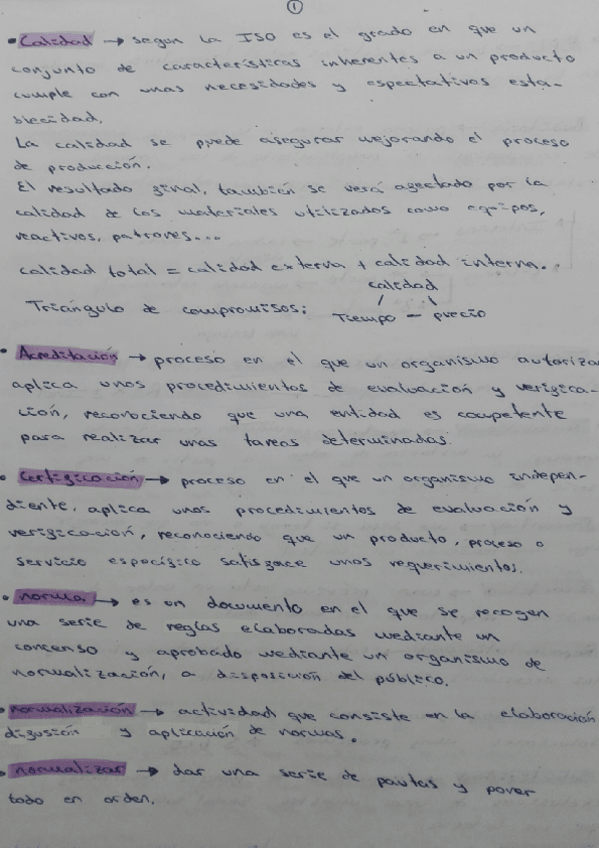 ①
• Calidad → según la ISO es el grado en que un
conjunto de características inherentes a un producto
cumple con unas necesidades y espectativas esta-
blecidad.
La calidad se puede asegurar mejorando el proceso
de producción.
El resultado final, también se verá afectado por la
calidad de los materiales utilizados como equipos,
reactivos, patrones...
calidad total = calidad externa + calidad interna.
calidad
Triángulo de compromisos: Tiempo — precio
• Acreditación → proceso en el que un organísmo autoriza
aplica unos procedimientos de evaluación y verifica-
ción, reconociendo que una entidad es competente
para realizar unas tareas determinadas.
• Certificación → proceso en el que un organismo indepen-
diente, aplica unos procedimientos de evaluación y
verificación, reconociendo que un producto, proceso o
servicio específico satisface unos requerimientos.
• norma → es un documento en el que se recogen
una serie de reglas elaboradas mediante un
concenso y aprobado mediante un organismo de
normalización, a disposición del público.
• normalización → actividad que consiste en la elaboración
difusión y aplicación de normas.
• normalizar → dar una serie de pautas y poner
todo en orden.